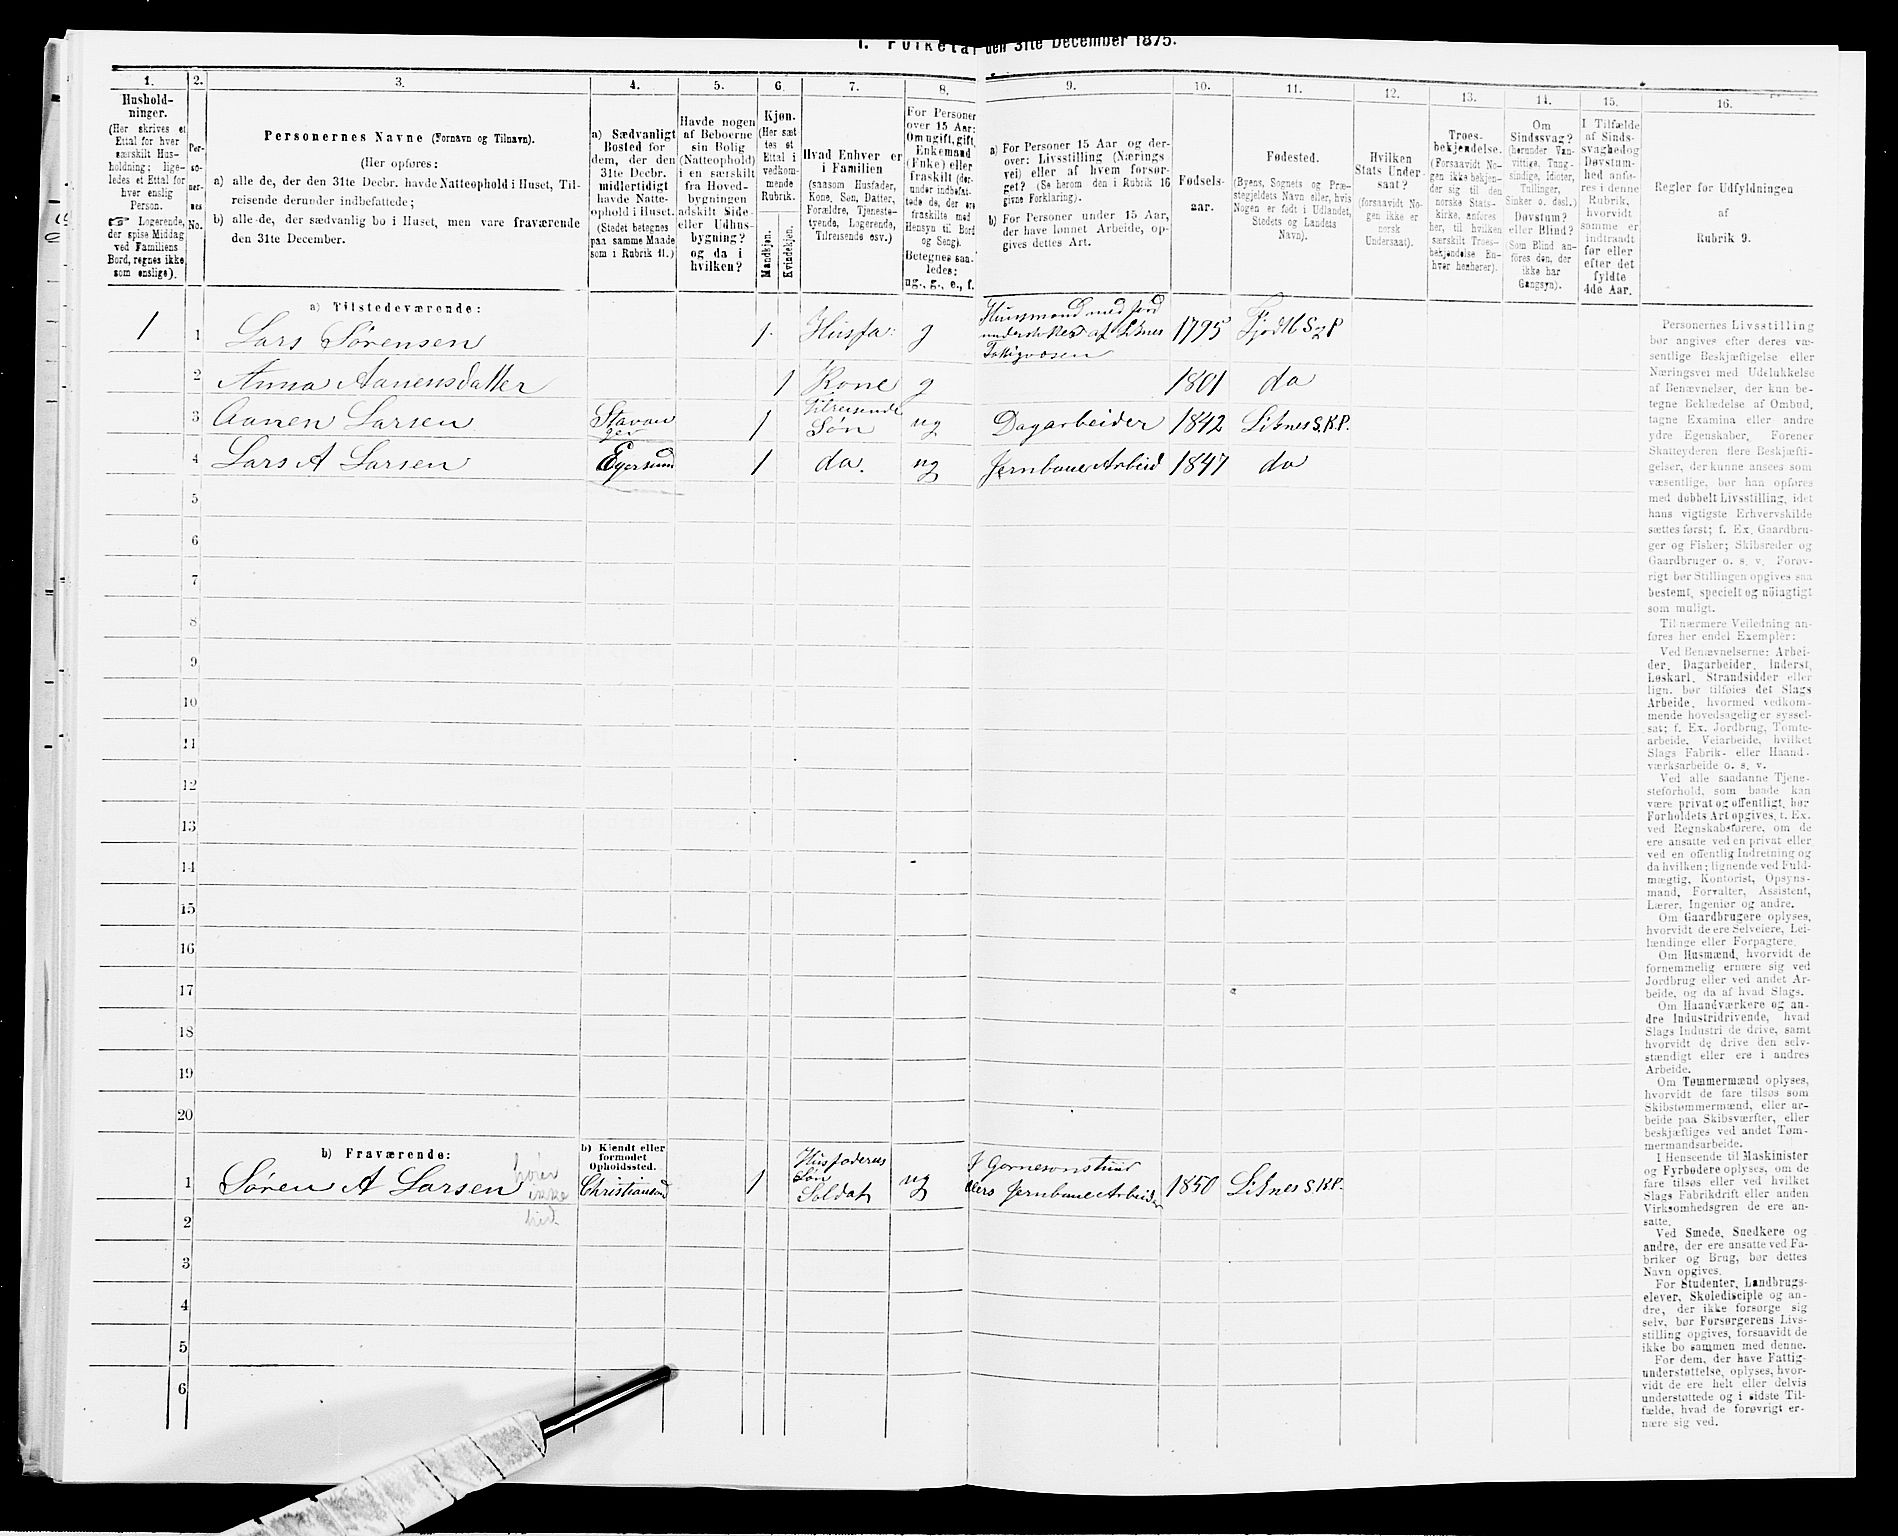 I. Folketal den 31te December 1875.
1.
2.
3.
4.
5.
6.
7.
8.
9.
10.
11.
12.
13.
14.
15.
16.
Hushold-
ninger.
(Her skrives et
Ettal for hver
særskilt Hus-
holdning; lige-
ledes et Ettal for
hver enslig
Person.
☞ Logerende,
der spise Middag
ved Familiens
Bord, regnes ikke
som enslige).
Per-
so-
ner-
nes
No.
Personernes Navne (Fornavn og Tilnavn).
(Her opføres:
a) alle de, der den 31te Decbr. havde Natteophold i Huset, Til-
reisende derunder indbefattede;
b) alle de, der sædvanlig bo i Huset, men vare fraværende
den 31te December.
a) Sædvanligt
Bosted for
dem, der den
31te Decbr.
midlertidigt
havde Natte-
ophold i Huset.
(Stedet betegnes
paa samme Maade
som i Rubrik 11.)
Havde nogen
af Beboerne
sin Bolig
(Natteophold)
i en særskilt
fra Hoved-
bygningen
adskilt Side-
eller Udhus-
bygning?
og da i
hvilken?
Kjøn.
(Her sæt
tes et
Ettal i
vedkom-
mende
Rubrik.
Mandkjøn.
Kvindekjøn.
Hvad Enhver er
i Familien
(saasom Husfader,
Kone, Søn, Datter,
Forældre, Tjeneste-
tyende, Logerende,
Tilreisende osv.)
For Personer
over 15 Aar:
Om ugift, gift,
Enkemand
(Enke) eller
fraskilt (der-
under indbefat-
tede de, der ere
fraskilte med
Hensyn til Bord
og Seng).
Betegnes saa-
ledes:
ug., g., e., f.
a) For Personer 15 Aar og der-
over: Livsstilling (Nærings
vei) eller af hvem forsør-
get? (Se herom den i Rubrik 16
givne Forklaring).
b) For Personer under 15 Aar,
der have lønnet Arbeide, op-
gives dettes Art.
Fødsels-
aar.
Fødested.
(Byens, Sognets og Præ-
stegjeldets Navn eller, hvis
Nogen er født i Udlandet,
Stedets og Landets
Navn).
Hvilken
Stats Under-
saat?
(forsaavidt No-
gen ikke er
norsk
Undersaat).
Troes-
bekjendelse.
(Forsaavidt No-
gen ikke bekjen-
der sig til den
norske Stats-
kirke, anføres
her, til hvilken
særskilt Troes-
bekjendelse En-
hver henhører).
Om
Sindssvag?
(herunder Van-
vittige, Tung-
sindige, Idioter,
Tullinger,
Sinker o. desl.)
Døvstum?
eller Blind?
(Som Blind an-
føres den, der
ikke har
Gangsyn).
I Tilfælde
af Sinds-
svaghed og
Døvstum-
hed anfø-
res i denne
Rubrik,
hvorvidt
samme er
indtraadt
før eller
efter det
fyldte
4de Aar.
Regler for Udfyldningen
af
Rubrik 9.
a) Tilstedeværende:
1
1 Lars Sørensen 1 Husfa: g Huusmand med Jord
understøttes af Liknes
Fattigvæsen 1795 Fjotl S&P
2 Anna Aanensdatter 1 Kone g 1801 da
3 Aanen Larsen Stavan
ger 1 Tilreisende
Søn ug Dagarbeider 1842 Liknes S.K.P.
4 Lars A Larsen Egersund 1 da. ug Jernbane Arbeid 1847 da
5
6
7
8
9
10
11
12
13
14
15
16
17
18
19
20
b) Fraværende:
b) Kjendt eller
formodet
Opholdssted.
1 Søren A Larsen hører
ikke
hid Christiansand 1 Husfaderens
Søn
Soldat ug
ellers Jernbane Arbeider 1850 Liknes S.K.P.
2
3
4
5
6
Personernes Livsstilling
bør angives efter deres væ-
sentlige Beskjæftigelse eller
Næringsvei med Udelukkelse
af Benævnelser, der kun be-
tegne Beklædelse af Ombud,
tagne Examina eller andre
ydre Egenskaber, Forener
Skatteyderen flere Beskjæfti-
gelser, der kunne ansees som
væsentlige, bør han opføres
med dobbelt Livsstilling, idet
hans vigtigste Erhvervskilde
sættes først; f. Ex. Gaardbru-
ger og Fisker; Skibsreder og
Gaardbruger o. s. v. Forøv-
rigt bør Stillingen opgives saa
bestemt, specielt og nöiagtigt
som muligt.
Til nærmere Veiledning an-
føres her endel Exempler:
Ved Benævnelserne: Arbei-
der, Dagarbeider, Inderst,
Løskarl, Strandsidder eller
lign. bør tilføies det Slags
Arbeide, hvormed vedkom-
mende hovedsagelig er syssel-
sat; f. Ex. Jordbrug, Tomte-
arbeide, Veiarbeide, hvilket
Slags Fabrik- eller Haand-
værksarbeide o. s. v.
Ved alle saadanne Tjene-
steforhold, som baade kan
være privat og offentligt, bør
Forholdets Art opgives, t. Ex.
ved Regnskabsførere, om de
ere ansatte ved en privat eller
ved en offentlig Indretning og
da hvilken; lignende ved Fuld-
mægtig, Kontorist, Opsyns-
mand, Forvalter, Assistent,
Lærer, Ingeniør og andre.
Om Gaardbrugere oplyses,
hvorvidt de ere Selveiere, Lei-
lændinge eller Forpagtere.
Om Husmænd, hvorvidt de
fornemmelig ernære sig ved
Jordbrug eller ved andet Ar-
beide, og da af hvad Slags.
Om Haandværkere og an-
dre Industridrivende, hvad
Slags Industri de drive, samt
hvorvidt de drive den selv-
stændigt eller ere i andres
Arbeide.
Om Tømmermænd oplyses,
hvorvidt de fare tilsøs som
Skibstømmermænd, eller ar-
beide paa Skibsværfter, eller
beskjæftiges ved andet Tøm-
mermandsarbeide.
I Henseende til Maskinister
og Fyrbødere oplyses, om de
fare tilsøs eller ved hvilket
Slags Fabrikdrift eller anden
Virksomhedsgren de ere an-
satte.
Ved Smede, Snedkere og
andre, der ere ansatte ved Fa-
briker og Brug, bør dettes
Navn opgives.
For Studenter, Landbrugs-
elever, Skoledisciple og an-
dre, der ikke forsørge sig
selv, bør Forsørgerens Livs-
stilling opgives, forsaavidt de
ikke bo sammen med denne.
For dem, der have Fattig-
understøttelse, oplyses, hvor-
vidt de ere helt eller delvis
understøttede og i sidste Til-
fælde, hvad de forøvrigt er-
nære sig ved.